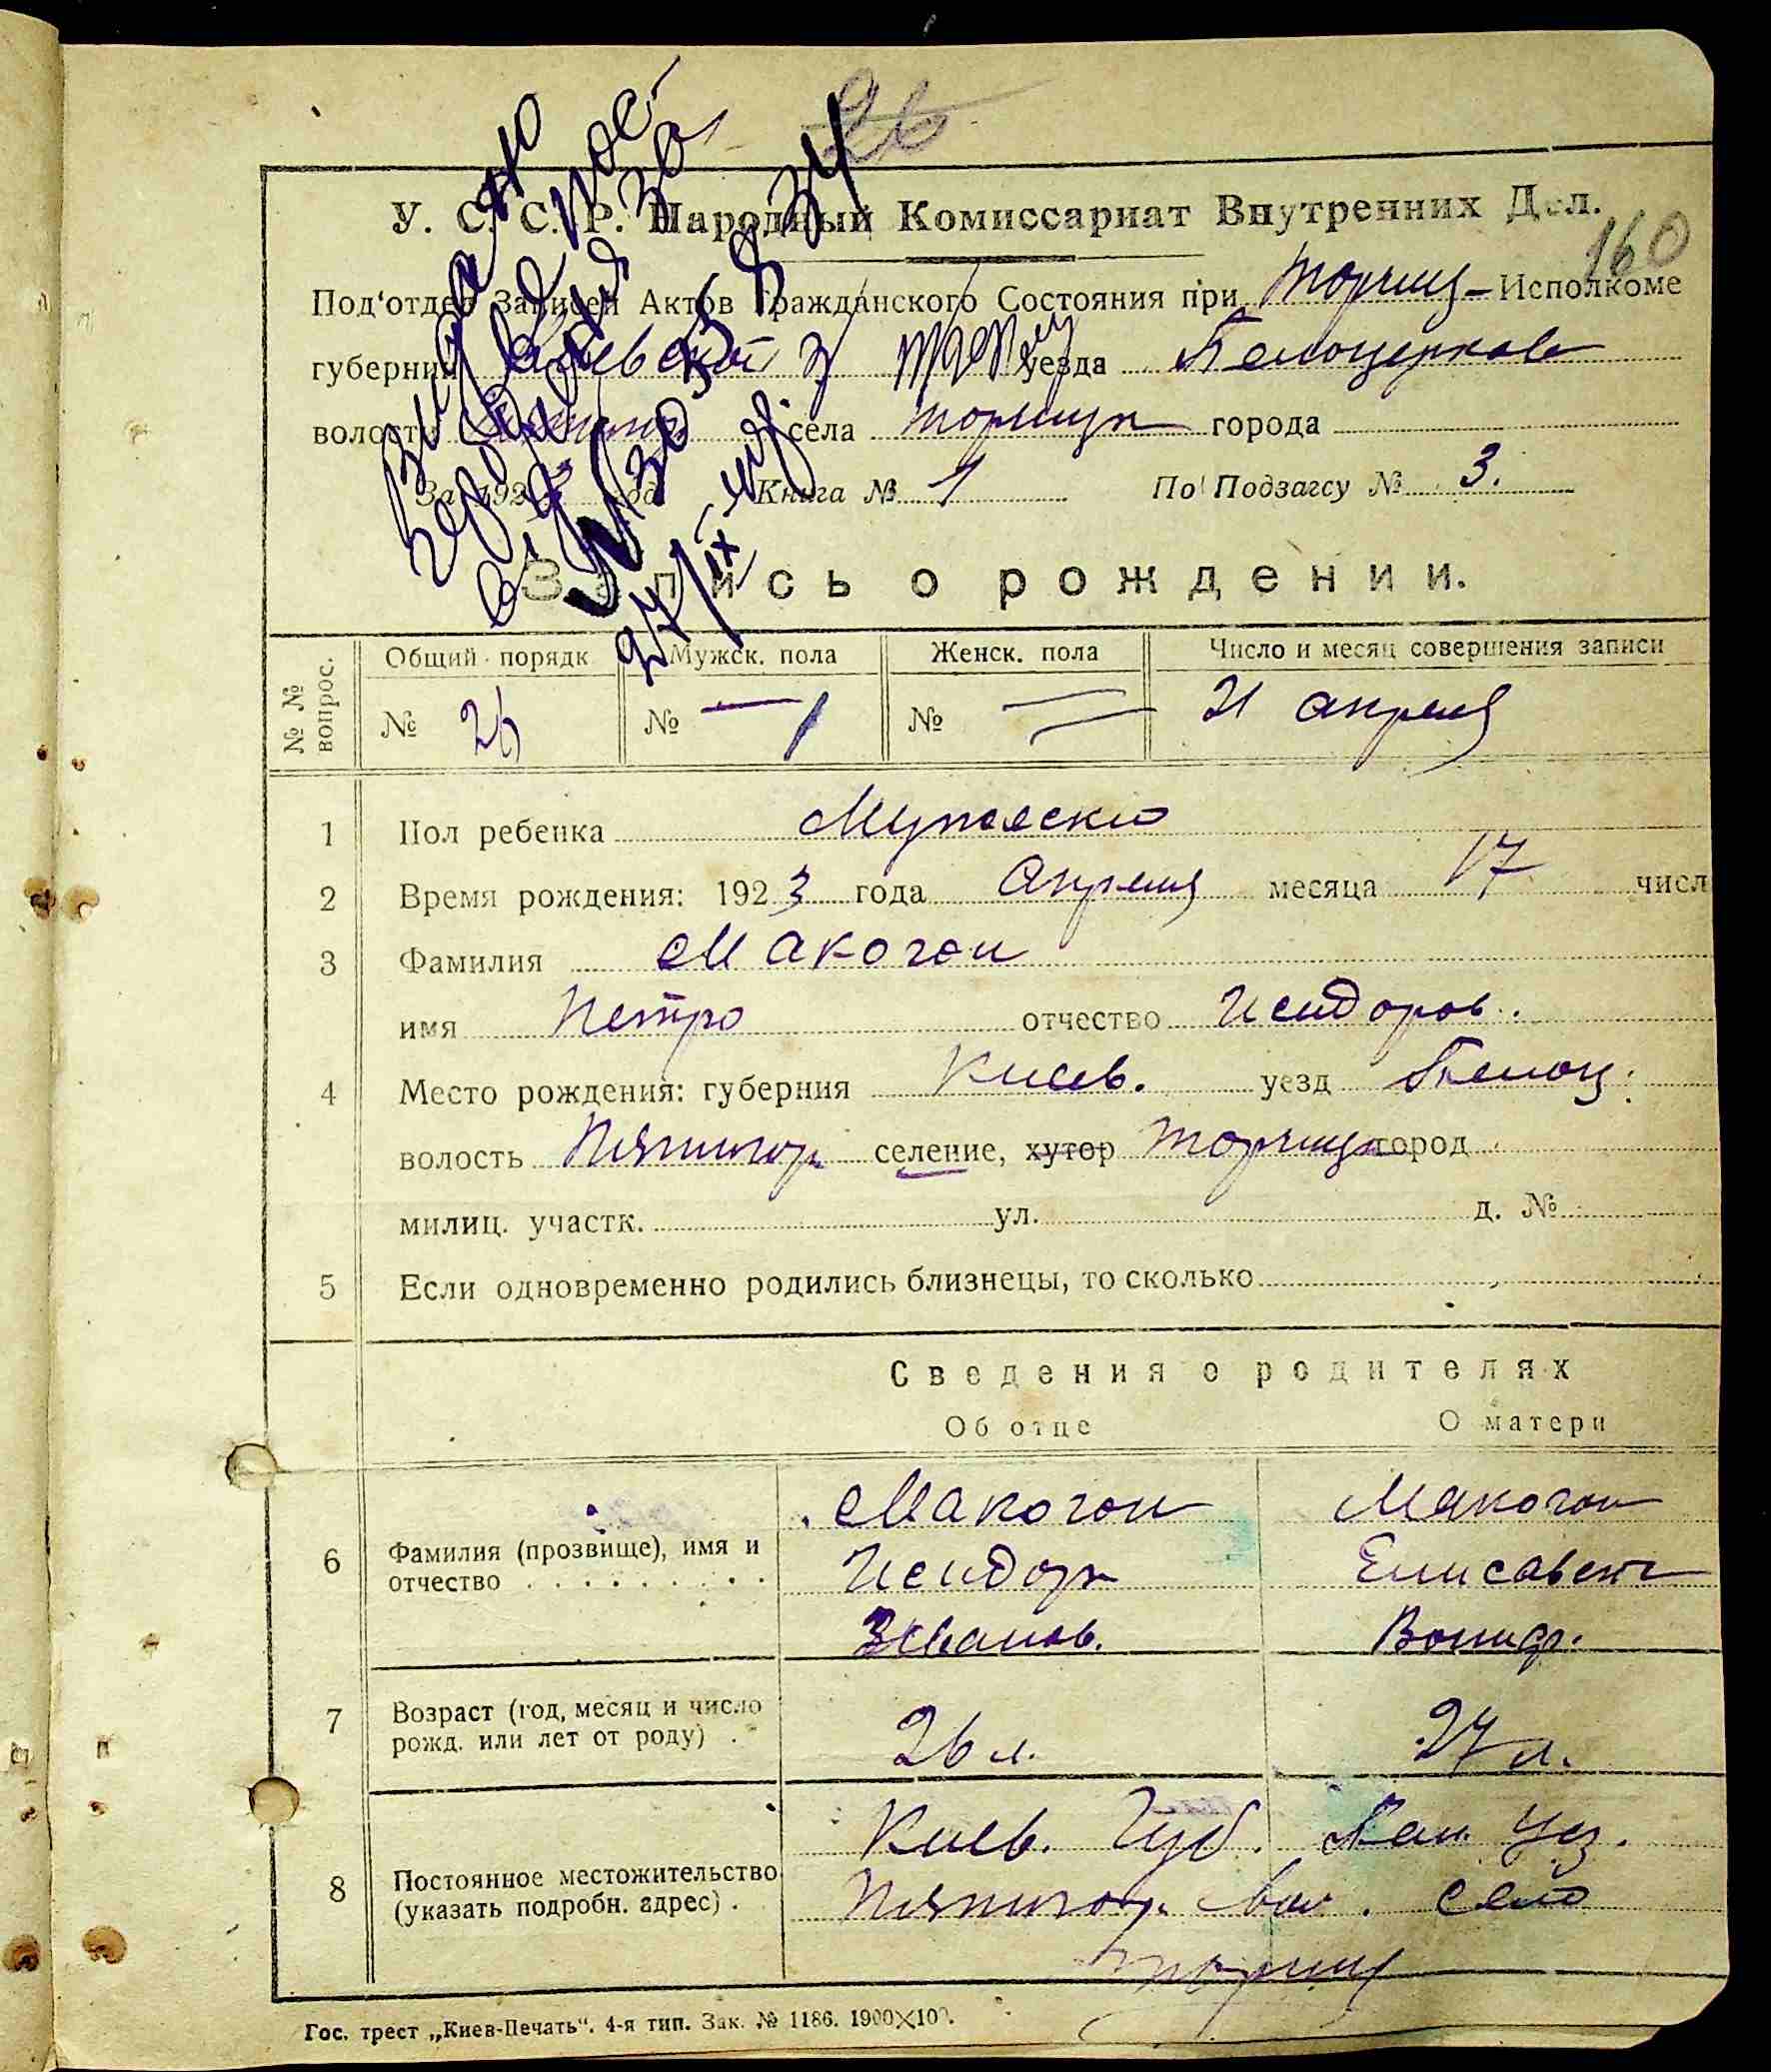 26
160
У. С. С. Р. Народный Комиссариат Внутренних Дел.
Под'отдел Записей Актов Гражданского Состояния при Торчиц- Исполкоме
губернии Киевской уезда Белоцерковс
волость села Торчицы города
За 192 год Книга № 1 По Подзагсу № 3.
Запись о рождении.
№ № вопрос.
Общий порядк Мужск. пола Женск. пола Число и месяц совершения записи
№ 26 № — 1 № 21 апреля
1 Пол ребенка Мужеско
2 Время рождения: 1923 года Апреля месяца 17 числ
3 Фамилия Макогон
имя Петро отчество Исидоров.
4 Место рождения: губерния Киев. уезд Белоц.
волость Пятигор. селение, хутор Торчица город
милиц. участк. ул. д. №
5 Если одновременно родились близнецы, то сколько
Сведения о родителях
Об отце О матери
6 Фамилия (прозвище), имя и отчество
Макогон Макогон
Исидор Елисавет
Иванов. Вониф.
7 Возраст (год, месяц и число рожд. или лет от роду) 26 л. 27 л.
8 Постоянное местожительство (указать подробн. адрес)
Киев. Губ. Бел. Уез.
Пятигор. вол. село
Торчиц
Гос. трест „Киев-Печать“. 4-я тип. Зак. № 1186. 1900×100.